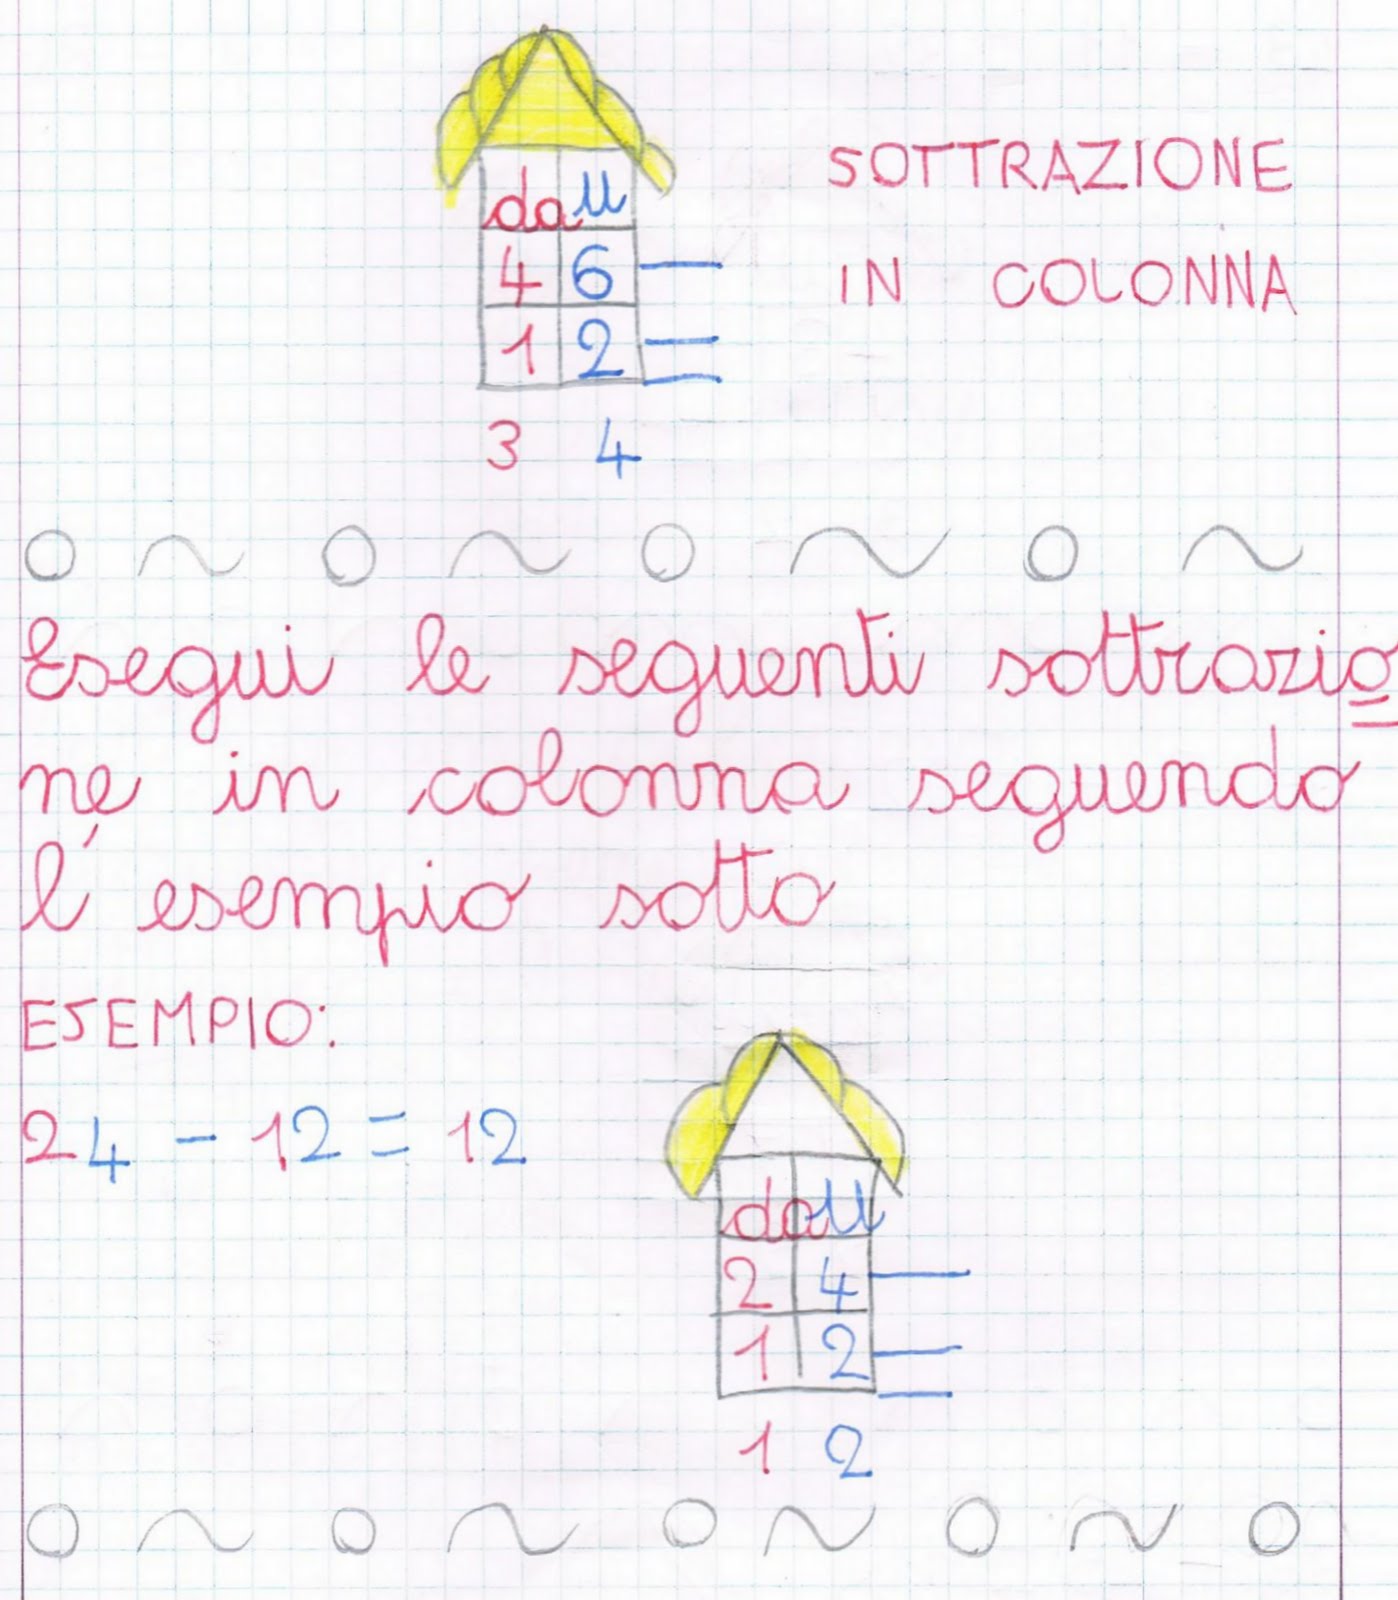 da u
4 6 — SOTTRAZIONE
1 2 = IN COLONNA
3 4
Esegui le seguenti sottrazio
ne in colonna seguendo
l'esempio sotto
ESEMPIO:
24 - 12 = 12
da u
2 4 —
1 2 =
1 2